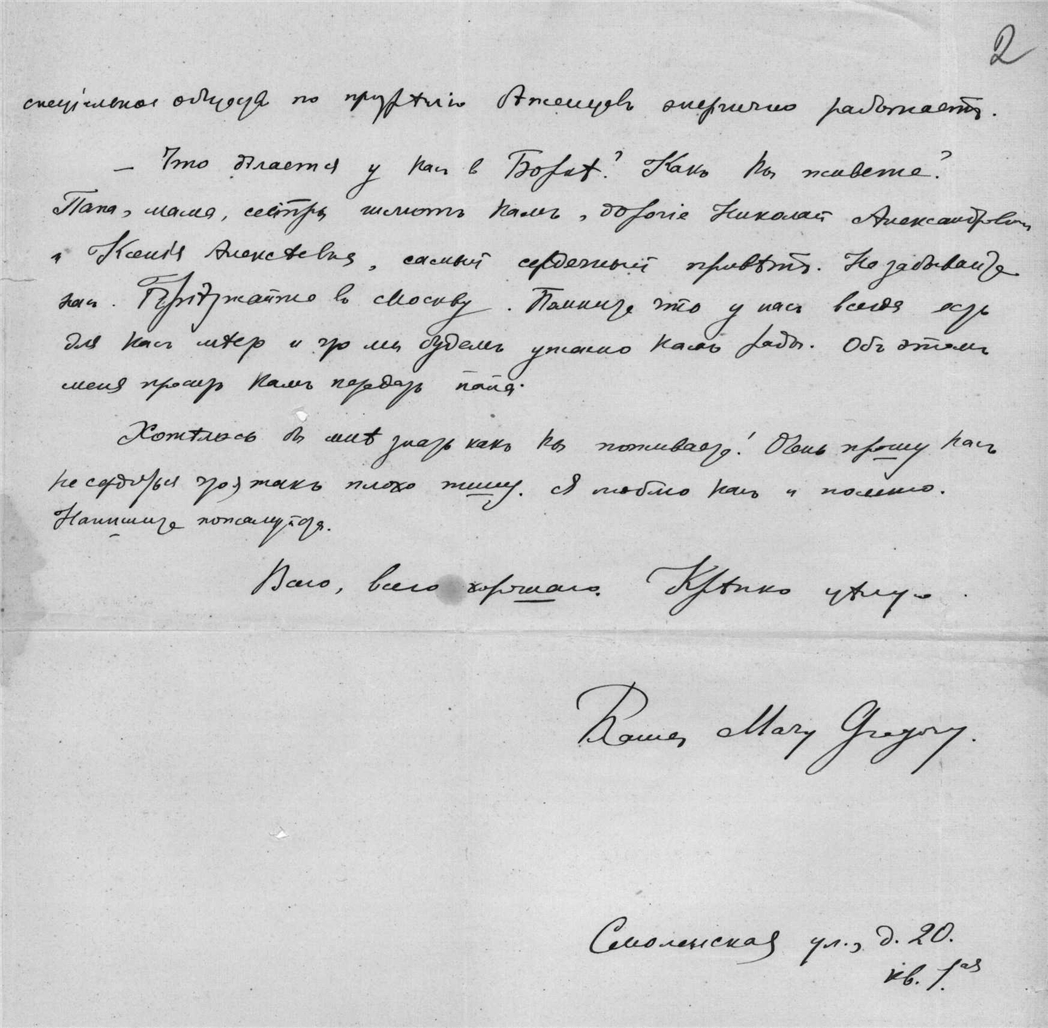 2
спецiальное общество по призрѣнiю бѣженцевъ энергично работаетъ.
— Что дѣлается у васъ в Боркѣ? Какъ вы живете?
Папа, мама, сестры шлютъ вамъ, дорогiе Николай Александровичъ
и Ксенiя Алексѣевна, самый сердечный привѣтъ. Не забывайте
насъ. Прiѣзжайте въ Москву. Помните что у насъ всегда есть
для васъ мѣсто и что мы будемъ ужасно вамъ рады. Объ этомъ
меня просить вамъ передать папа.
Хотѣлось бы мнѣ знать какъ вы поживаете! Очень прошу васъ
не сердиться что я такъ плохо пишу. Я люблю васъ и помню.
Напишите пожалуйста.
Всего, всего хорошаго. Крѣпко цѣлую.
Ваша Mary Gregory.
Смоленская ул., д. 20.
кв. 1ая